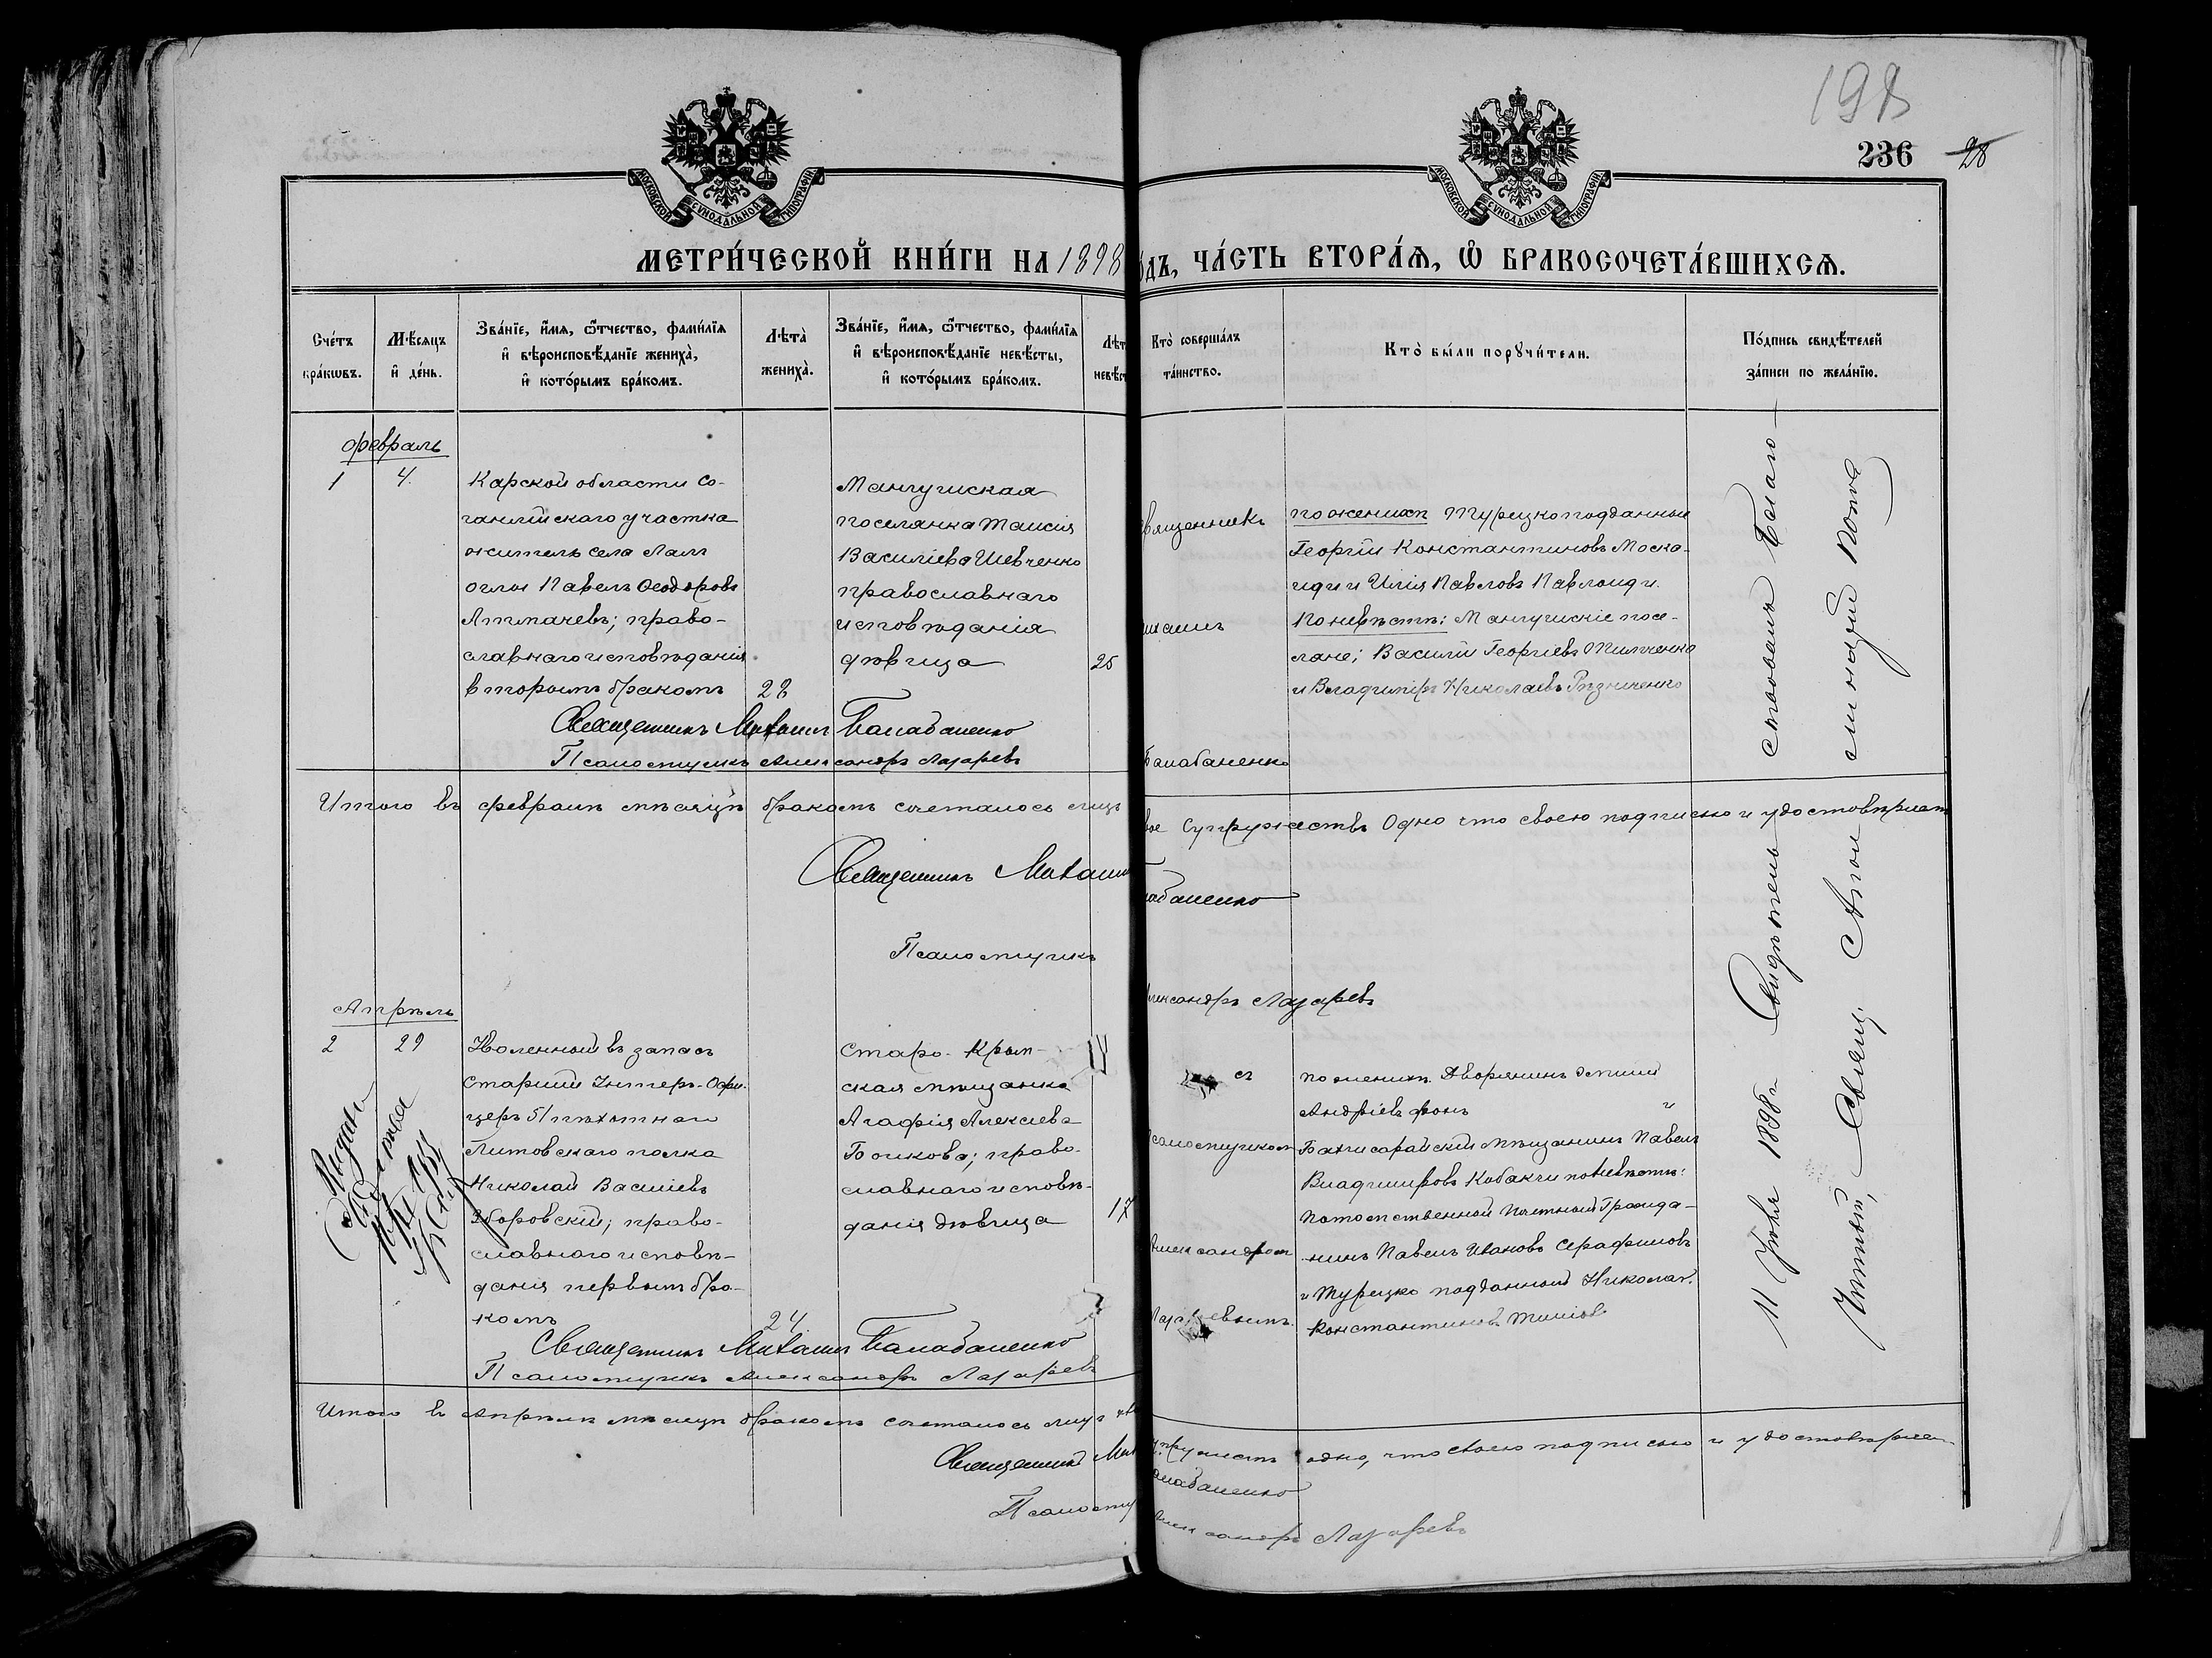 198
236 28
МОСКОВСКОЙ СѴНОДАЛЬНОЙ ТИПОГРАФІИ
МОСКОВСКОЙ СѴНОДАЛЬНОЙ ТИПОГРАФІИ
МЕТРИ́ЧЕСКОЙ КНИ́ГИ НА 1898
ДЪ, ЧА́СТЬ ВТОРА́Ѧ, Ѡ҆ БРАКОСОЧЕТА́ВШИХСѦ.
Сче́тъ
бра́кѡвъ.
Мѣ́сяцъ
и҆ де́нь.
Зва́нїе, и҆́мѧ, ѻ҆́тчество, фами́лїѧ
и҆ вѣроисповѣ́данїе жениха̀,
и҆ кото́рымъ бра́комъ.
Лѣта̀
жениха̀.
Зва́нїе, и҆́мѧ, ѻ҆́тчество, фами́лїѧ
и҆ вѣроисповѣ́данїе невѣ́сты,
и҆ кото́рымъ бра́комъ.
Лѣт
невѣст
Кто̀ соверша́лъ
та́инство.
Кто̀ бы́ли порꙋчи́тели.
По́дпись свидѣ́телей
за́писи по жела́нїю.
Февраль
1 4.
Карской области Со-
ганлугскаго участка
житель села Лалг
оглы Павелъ Ѳеодоровъ
православнаго исповѣданія
вторымъ бракомъ 28
Мангушская
поселянка Таисія
Василіева Шевченко
православнаго
исповѣданія
дѣвица 25
вященникъ
ихаилъ
Балабаненко
по женихѣ Турецкоподданные
Георгій Константиновъ Моска-
иди и Илія Павловъ Павлоиди.
По невѣстѣ: Мангушскіе посе-
ляне; Василій Георгіевъ Пилченко
и Владиміръ Николаевъ Рѣзниченко
Священникъ Михаилъ Балабаненко
Псаломщикъ Александръ Лазаревъ
Итого въ февралѣ мѣсяцѣ бракомъ сочеталось лицъ
вое Супружествъ Одно что своею подписью и удостовѣряемъ
Священникъ Михаилъ
лабаненко
Псаломщикъ
лександръ Лазаревъ
Апрѣль
2 29
Уволенный въ запасъ
Старшій Унтеръ-Офи-
церъ 51 пѣхотнаго
Литовскаго полка
Николай Василіевъ
Зборовскій; право-
славнаго исповѣ-
данія первымъ бра-
комъ 24
Старо-Крым-
ская мѣщанка
Агафія Алексіева
Бочкова; право-
славнаго исповѣ-
данія дѣвица 17
съ
псаломщикомъ
Александромъ
Лазаревымъ.
по женихѣ. Дворянинъ Эмилій
Андреевъ фонъ "
Бахчисарайскій мѣщанинъ Павелъ
Владиміровъ Кабакчи по невѣстѣ:
Потомственный Почетный Гражда-
нинъ Павелъ Ивановъ Серафимовъ
и Турецко подданный Николай
Константиновъ
Священникъ Михаилъ Балабаненко
Псаломщикъ Александръ Лазаревъ
Итого въ Апрѣлѣ мѣсяцѣ бракомъ сочеталось лицъ
супружествъ одно, что своею подписью и удостовѣряемъ
Священникъ Мих
алабаненко
Псаломщ
Александръ Лазаревъ
11 Іюня 1898 г. Свидѣтель
Свящ.